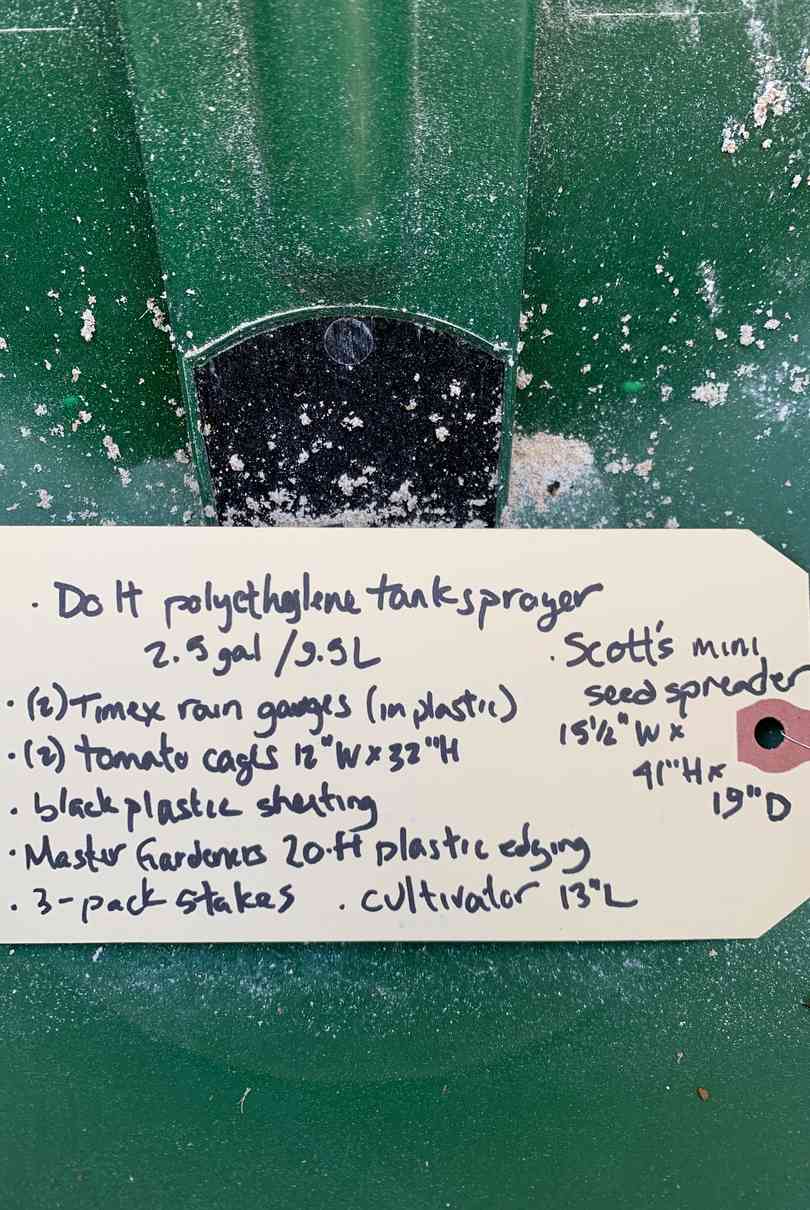 · Do It polyethylene tank sprayer
2.5 gal / 9.5L
· Scott's mini
seed spreader
15½" W x
41" H x
19" D
· (2) Timex rain gauges (in plastic)
· (2) tomato cages 12" W x 32" H
· black plastic sheeting
· Master Gardeners 20-ft plastic edging
· 3-pack stakes · cultivator 13" L